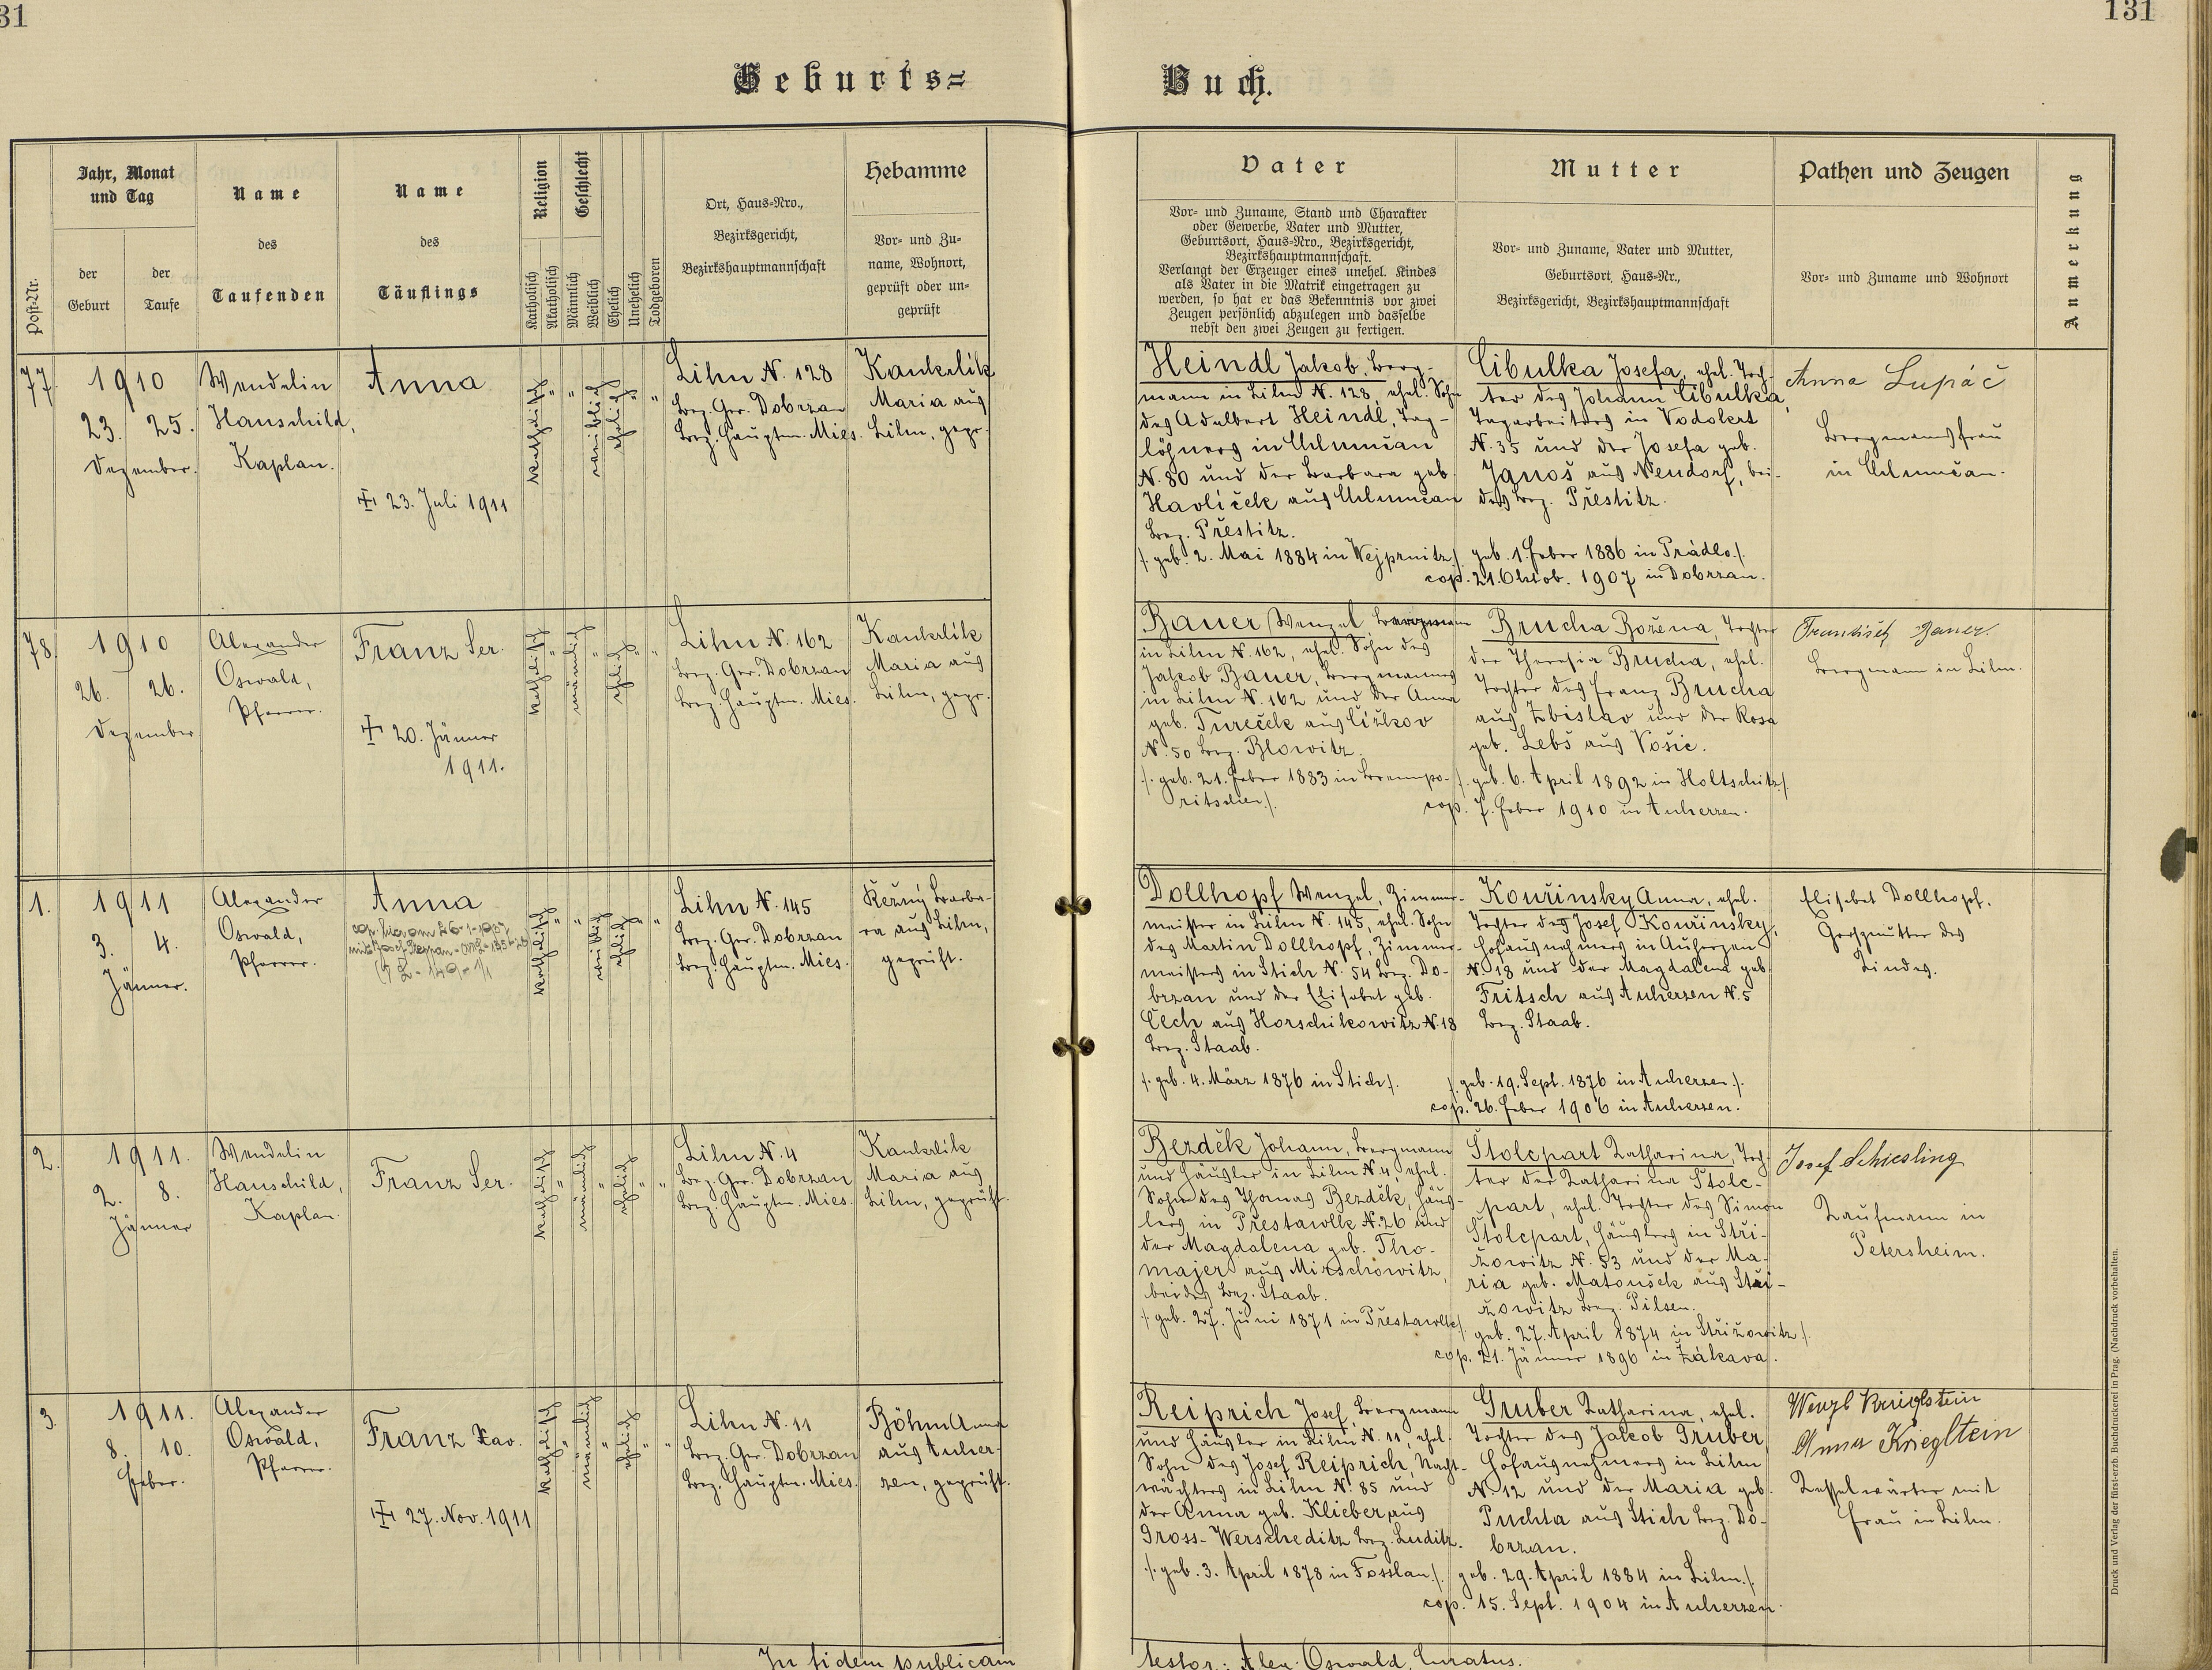 31
131
Geburts=
Buch.
Post-Nr.
Jahr, Monat
und Tag
der
Geburt
der
Taufe
Name
des
Taufenden
Name
des
Täuflings
Religion
Katholisch
Akatholisch
Geschlecht
Männlich
Weiblich
Ehelich
Unehelich
Todgeboren
Ort, Haus=Nro.,
Bezirksgericht,
Bezirkshauptmannschaft
Hebamme
Vor= und Zu=
name, Wohnort,
geprüft oder un=
geprüft
Vater
Vor= und Zuname, Stand und Charakter
oder Gewerbe, Vater und Mutter,
Geburtsort, Haus=Nro., Bezirksgericht,
Bezirkshauptmannschaft.
Verlangt der Erzeuger eines unehel. Kindes
als Vater in die Matrik eingetragen zu
werden, so hat er das Bekenntnis vor zwei
Zeugen persönlich abzulegen und dasselbe
nebst den zwei Zeugen zu fertigen.
Mutter
Vor= und Zuname, Vater und Mutter,
Geburtsort, Haus=Nr.,
Bezirksgericht, Bezirkshauptmannschaft
Pathen und Zeugen
Vor= und Zuname und Wohnort
Anmerkung
77.
1910
23. 25.
Dezember.
Wendelin
Hauschild,
Kaplan.
Anna
23. Juli 1911
katholisch
"
"
weiblich
ehelich
"
"
Lihn N. 128
Bez. Ger. Dobrzan
Bez. Hauptm. Mies.
Kankrlik
Maria aus
Lihn, gepr.
Heindl Jakob, Berg-
mann in Lihn N. 128, ehel. Sohn
des Adalbert Heindl, Tag-
löhners in Chlumčan
N. 80 und der Barbara geb.
Havlíček aus Chlumčan
Bez. Přestitz.
/. geb. 2. Mai 1884 in Wejprnitz ./
Cibulka Josefa, ehel. Toch-
ter des Johann Cibulka,
Tagarbeiters in Vodokrt
N. 35 und der Josefa geb.
Janoš aus Neudorf, bei-
des Bez. Přestitz.
/. geb. 1. Feber 1886 in Prádlo ./
cop. 21. Oktob. 1907 in Dobrzan.
Anna Lupáč
Bergmannsfrau
in Chlumčan.
78.
1910
26. 26.
Dezember
Alexander
Oswald,
Pfarrer.
Franz Ser.
20. Jänner
1911.
katholisch
"
männlich
"
ehelich
"
"
Lihn N. 162
Bez. Ger. Dobrzan
Bez. Hauptm. Mies.
Kankrlik
Maria aus
Lihn, gepr.
Bauer Wenzel Bergmann
in Lihn N. 162, ehel. Sohn des
Jakob Bauer, Bergmannes
in Lihn N. 162 und der Anna
geb. Tureček aus Čížkov
N. 50 Bez. Blowitz.
/. geb. 21. Feber 1883 in Brennpo-
ritschen ./
Brucha Božena, Tochter
der Theresia Brucha, ehel.
Tochter des Franz Brucha
aus Zbislav und der Rosa
geb. Lebš aus Vošic.
/. geb. 6. April 1892 in Holtschitz ./
cop. 7. Feber 1910 in Auherzen.
František Bauer.
Bergmann in Lihn.
1.
1911
3. 4.
Jänner.
Alexander
Oswald,
Pfarrer.
Anna
katholisch
"
"
weiblich
ehelich
"
"
Lihn N. 145
Bez. Ger. Dobrzan
Bez. Hauptm. Mies.
Režný Barba-
ra aus Lihn,
geprüft.
Dollhopf Wenzel, Zimmer-
meister in Lihn N. 145, ehel. Sohn
des Martin Dollhopf, Zimmer-
meisters in Stich N. 54 Bez. Do-
brzan und der Elisabet geb.
Čech aus Horschikowitz N. 18
Bez. Staab.
/. geb. 4. März 1876 in Stich ./
Kouřinsky Anna, ehel.
Tochter des Josef Kouřinsky,
Hofausnehmers in Auherzen
N. 18 und der Magdalena geb.
Fritsch aus Auherzen N. 5
Bez. Staab.
/. geb. 19. Sept. 1876 in Auherzen ./
cop. 26. Feber 1906 in Auherzen.
Elisabet Dollhopf.
Großmutter des
Kindes.
2.
1911.
2. 8.
Jänner
Wendelin
Hauschild,
Kaplan.
Franz Ser.
katholisch
"
männlich
"
ehelich
"
"
Lihn N. 4
Bez. Ger. Dobrzan
Bez. Hauptm. Mies.
Kankrlik
Maria aus
Lihn, geprüft.
Bezděk Johann, Bergmann
und Häusler in Lihn N. 4, ehel.
Sohn des Thomas Bezděk, Häus-
lers in Přestawlk N. 26 und
der Magdalena geb. Tho-
majer aus Mirschowitz,
beides Bez. Staab.
/. geb. 27. Juni 1871 in Přestawlk ./
Štolcpart Katharina, Toch-
ter der Katharina Štolc-
part, ehel. Tochter des Simon
Štolcpart, Häuslers in Stři-
žowitz N. 53 und der Ma-
ria geb. Matoušek aus Stři-
žowitz Bez. Pilsen.
geb. 27. April 1874 in Střižowitz ./
cop. 21. Jänner 1896 in Žákava.
Josef Schiesling
Kaufmann in
Petersheim.
3.
1911.
8. 10.
Feber.
Alexander
Oswald,
Pfarrer.
Franz Xav.
27. Nov. 1911
katholisch
"
männlich
"
ehelich
"
"
Lihn N. 11
Bez. Ger. Dobrzan
Bez. Hauptm. Mies.
Böhm Anna
aus Auher-
zen, geprüft.
Reiprich Josef, Bergmann
und Häusler in Lihn N. 11, ehel.
Sohn des Josef Reiprich, Nacht-
wächters in Lihn N. 85 und
der Anna geb. Klieber aus
Gross-Werscheditz Bez. Luditz.
/. geb. 3. April 1878 in Fosslau ./
Gruber Katharina, ehel.
Tochter des Jakob Gruber,
Hofausnehmers in Lihn
N. 12 und der Maria geb.
Puchta aus Stich Bez. Do-
brzan.
geb. 29. April 1884 in Lihn ./
cop. 15. Sept. 1904 in Auherzen.
Wenzl Krieglstein
Anna Krieglstein
Kesselwärter mit
Frau in Lihn.
In fidem publicam
testor: Alex. Oswald, Curatus.
Druck und Verlag der fürst-erzb. Buchdruckerei in Prag. (Nachdruck vorbehalten.